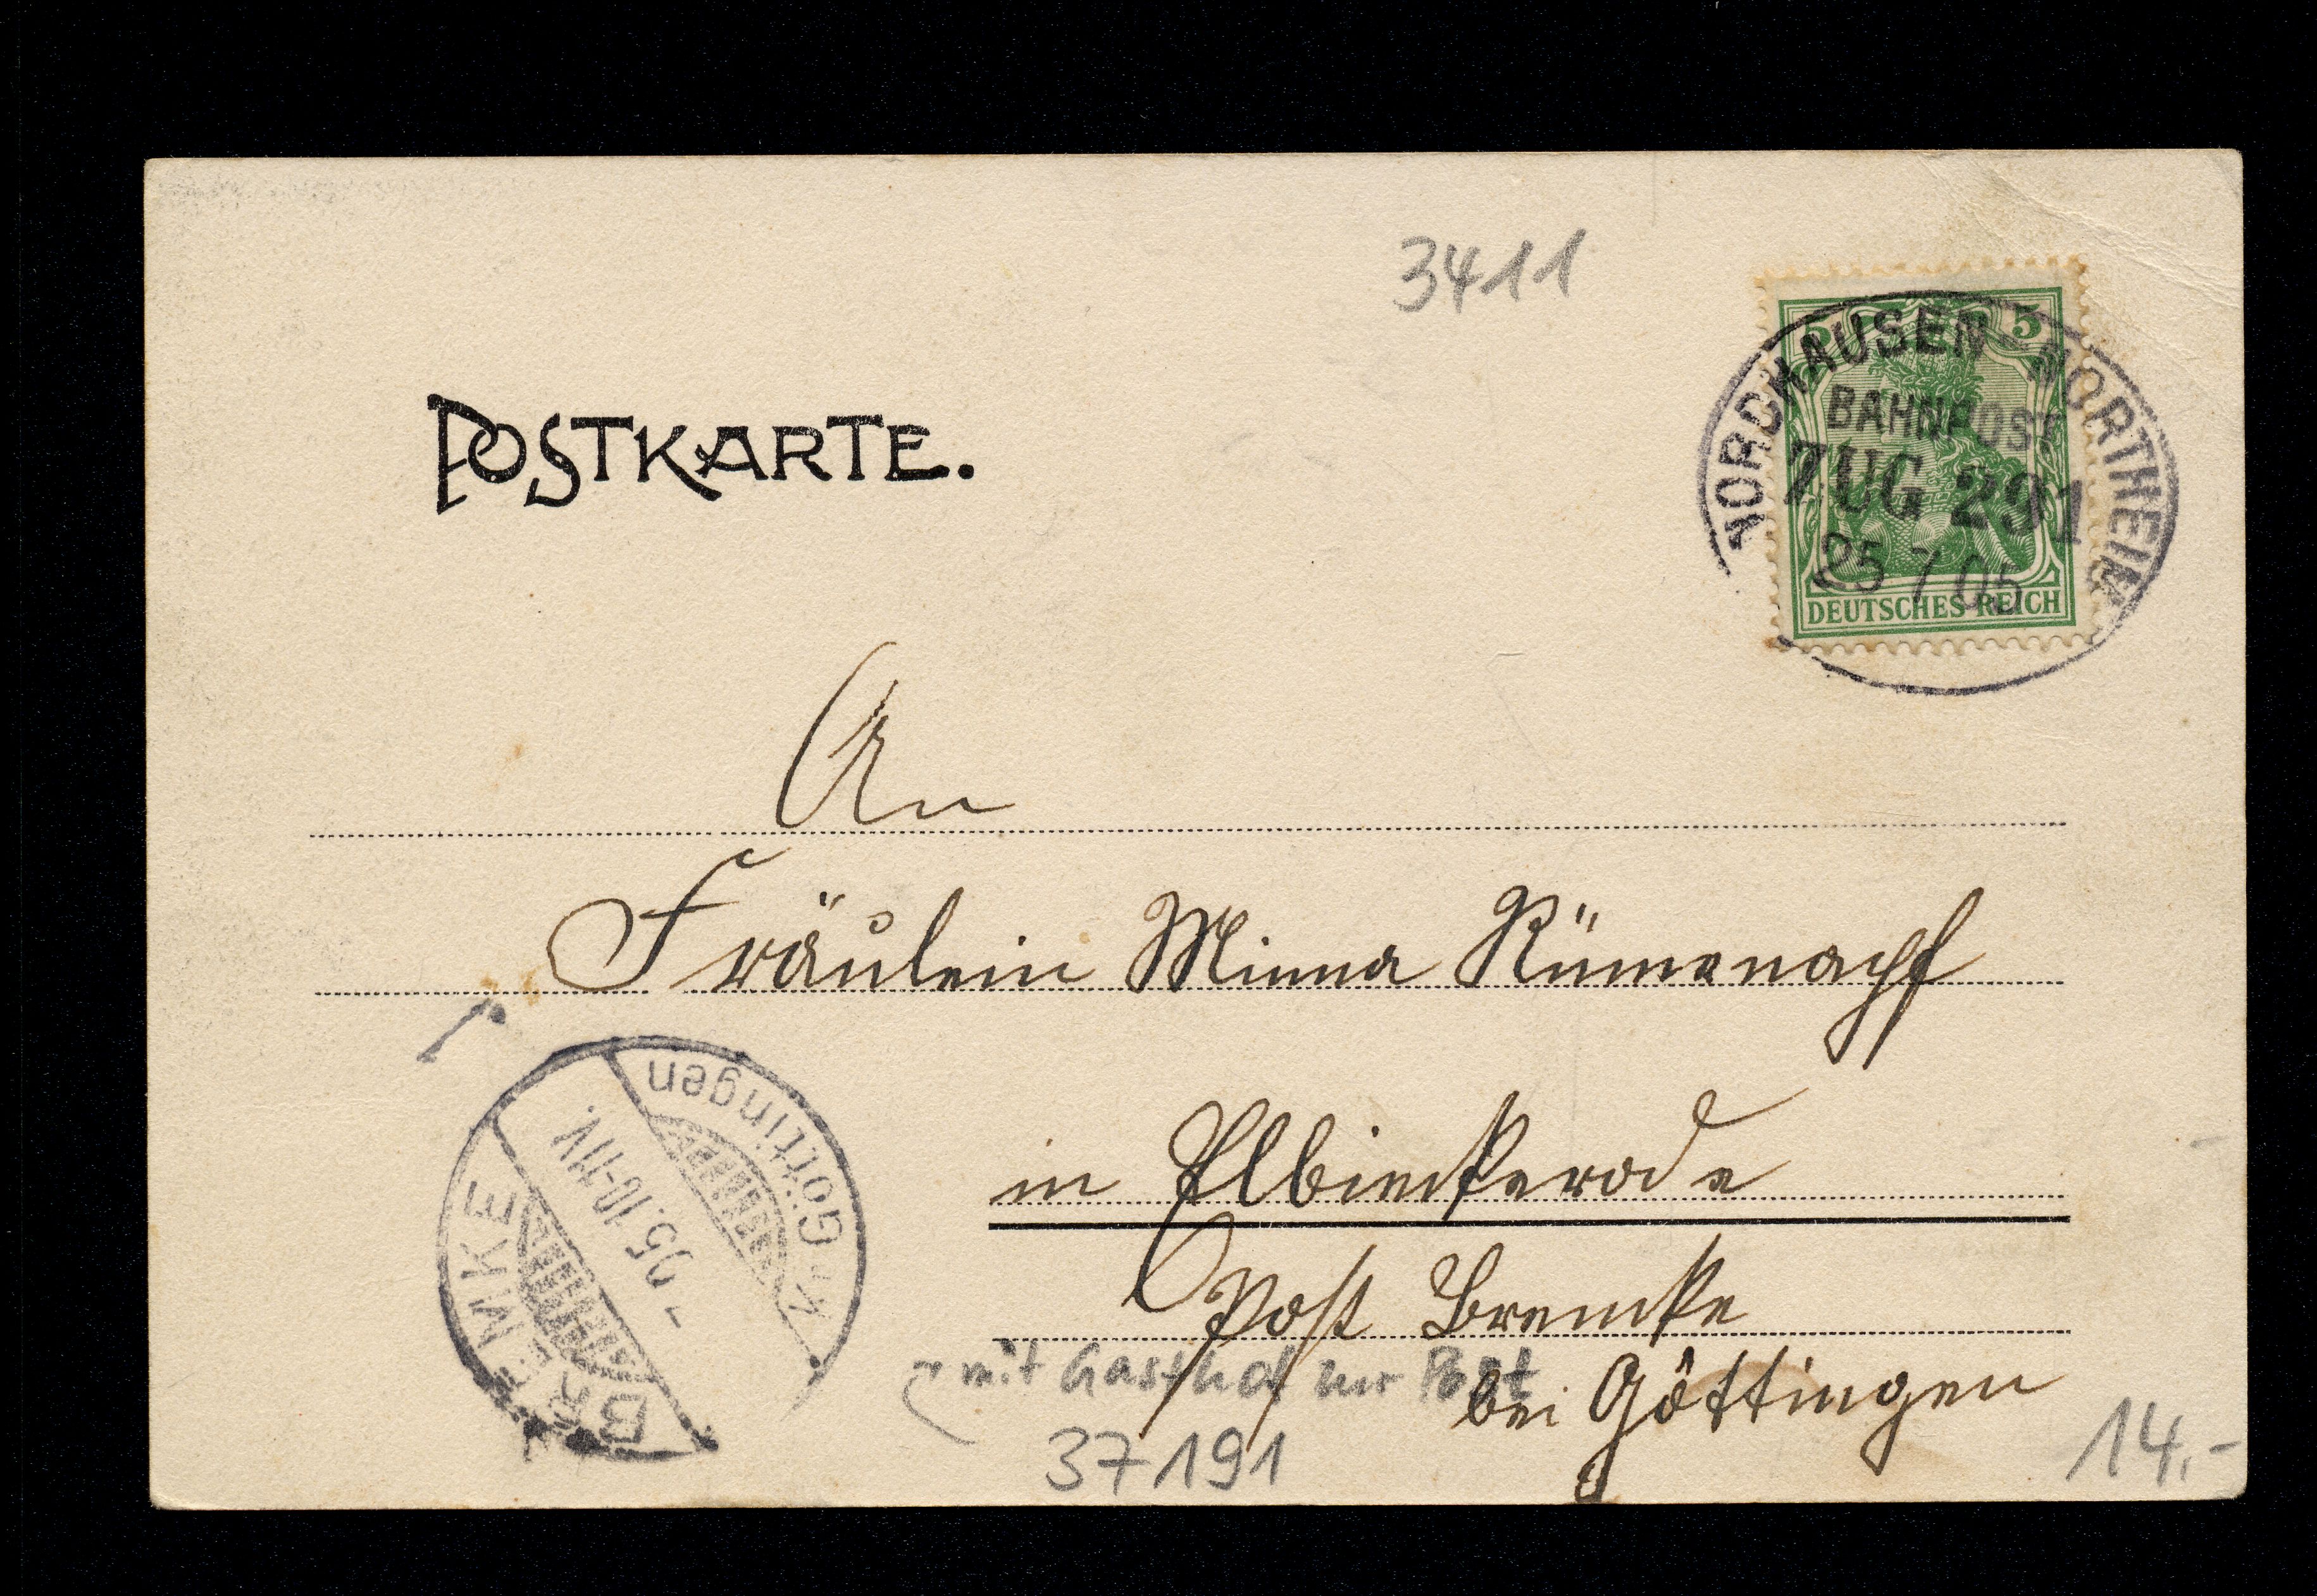 3411
POSTKARTE.
5 5
NORDHAUSEN-NORTHEIM
BAHNPOST
ZUG 291
25 7 05
DEUTSCHES REICH
An
Fräulein Minna Rümenapf
in Elbickerode
Post Bremke
bei Göttingen
BREMKE
05. 10-11V.
Göttingen
mit Gasthof zur Post
37191
14,-